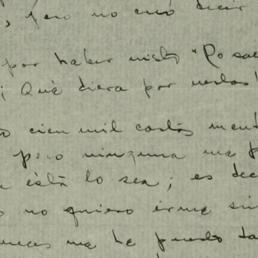 , pero no creo decir
por haber visto "Rosa
¡Qué diera por verlos!
cien mil cartas ment
pero ninguna me p
está lo sea; es dec
no quiero irme sin
me he puesto